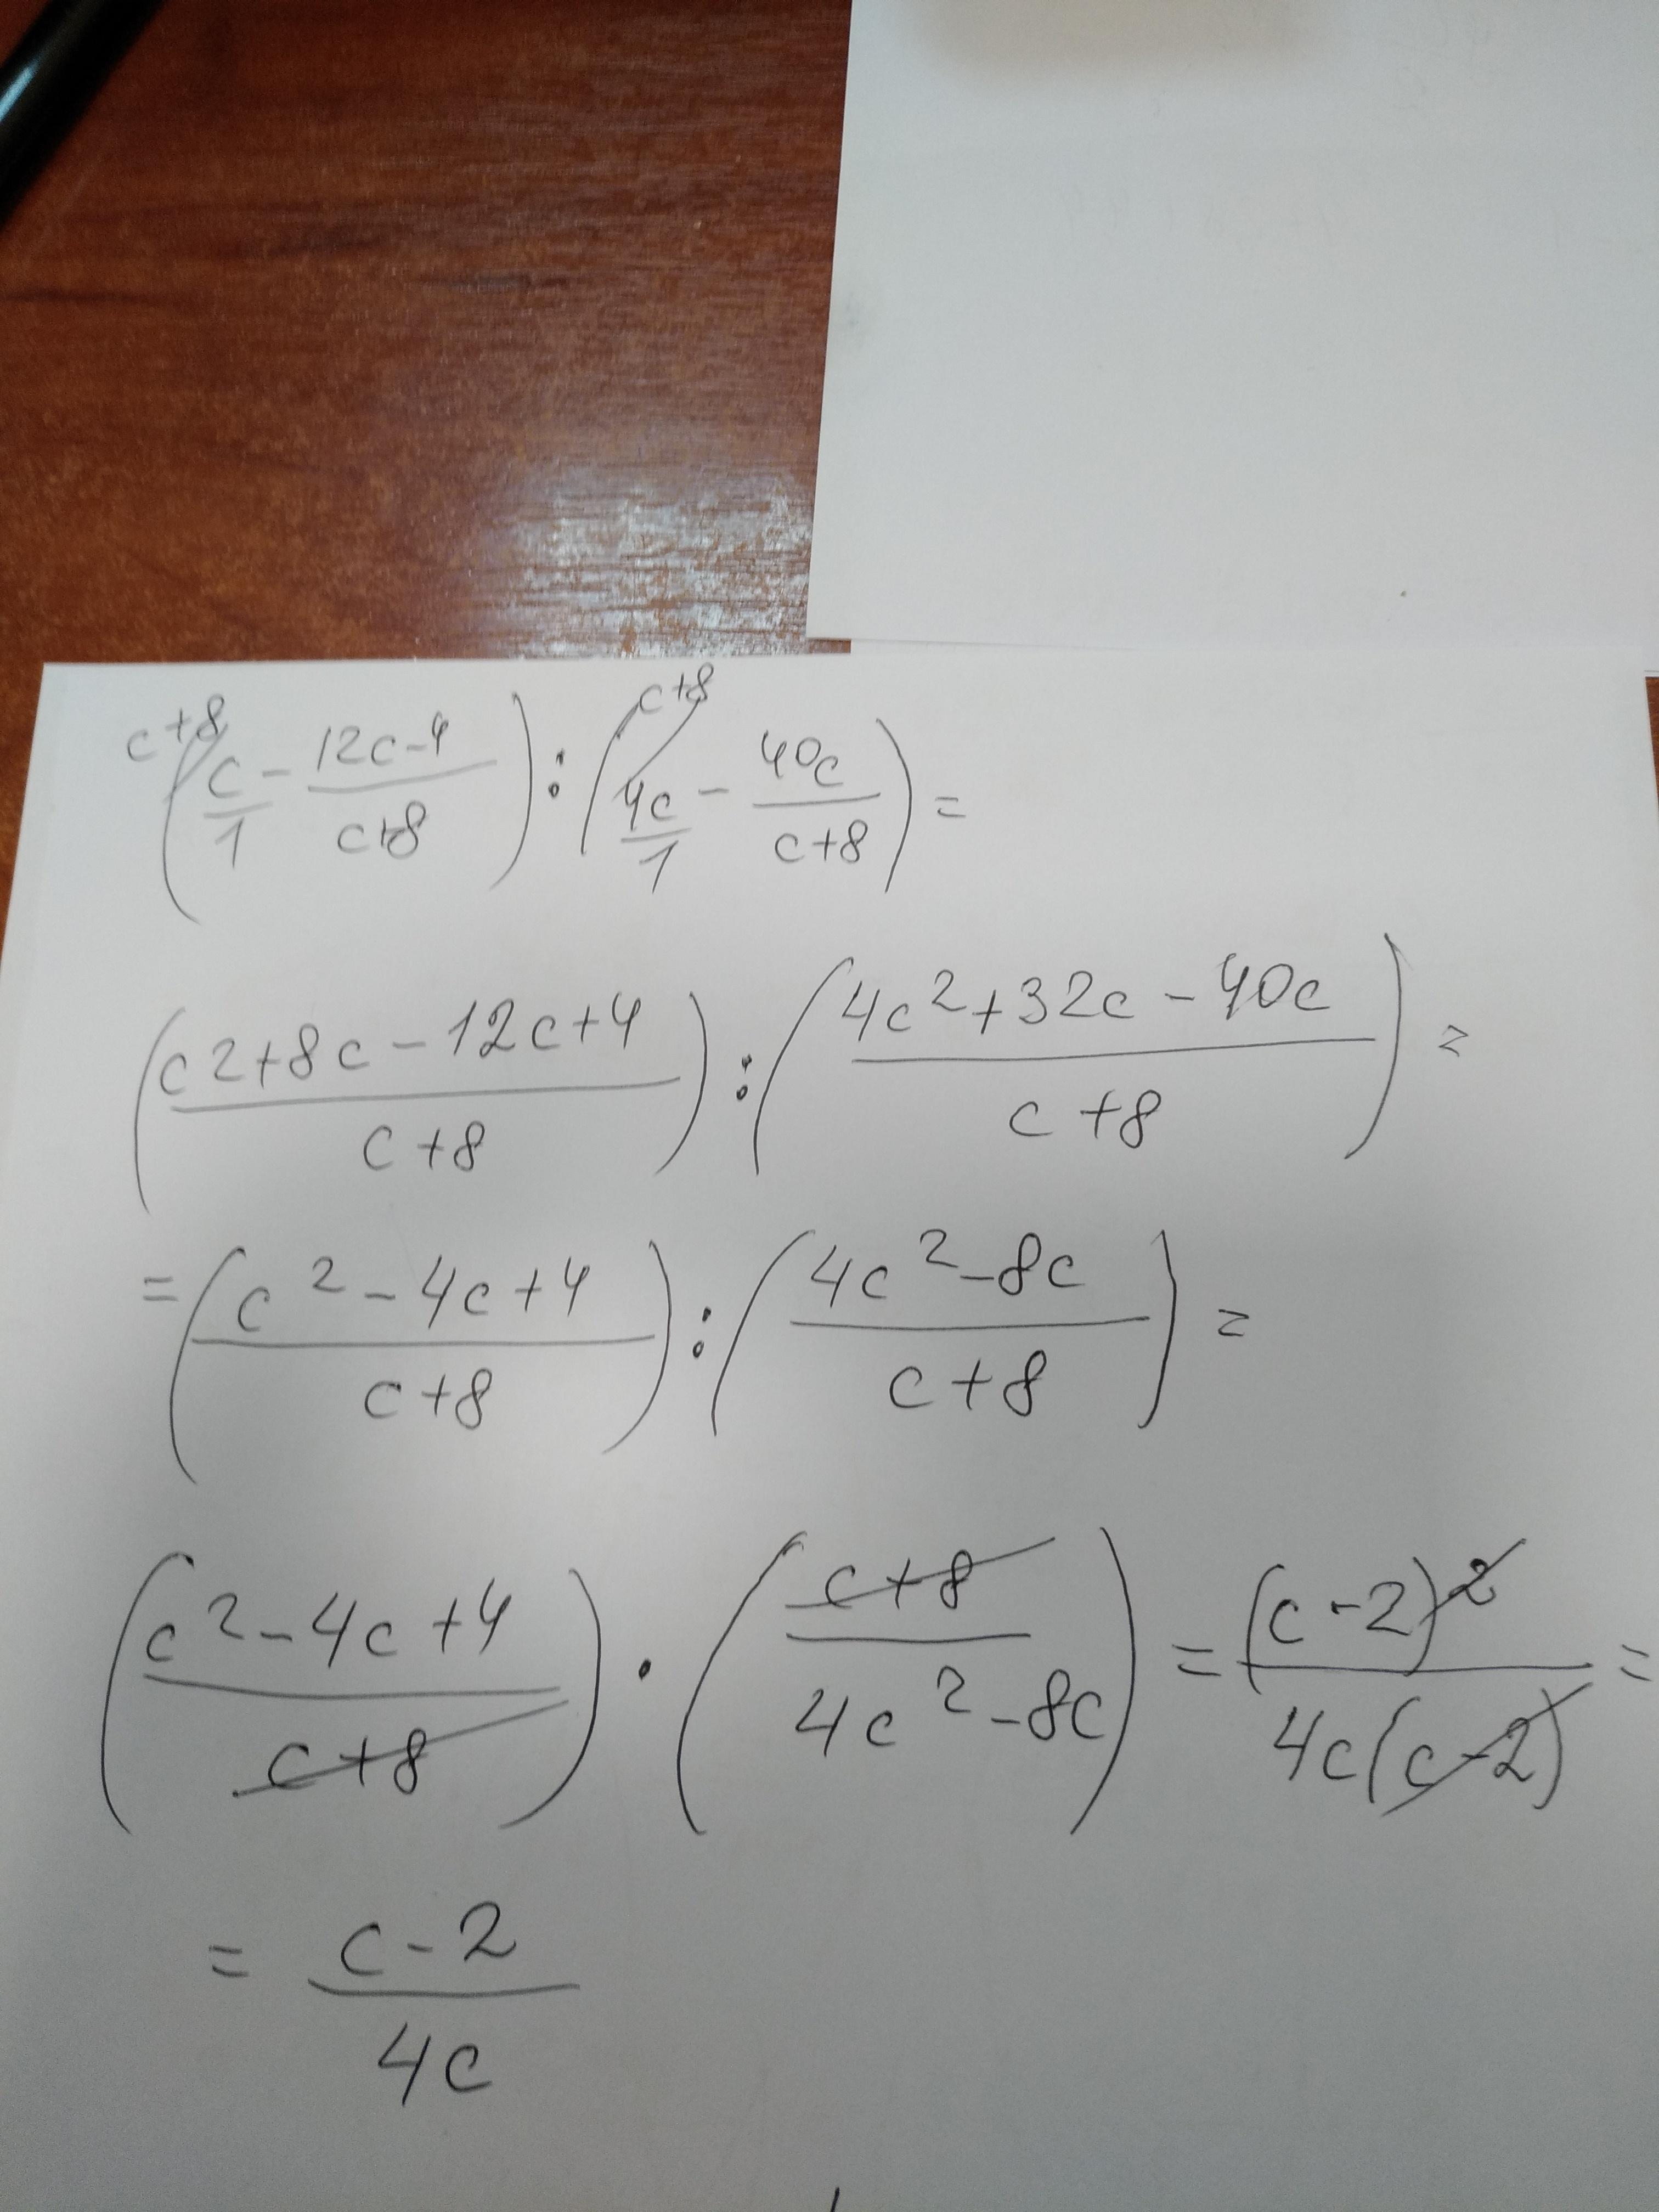 (c/1 - (12c-4)/(c+8)) : (4c/1 - 40c/(c+8)) =
c+8 c+8
((c2+8c-12c+4)/(c+8)) : ((4c²+32c-40c)/(c+8)) =
= ((c²-4c+4)/(c+8)) : ((4c²-8c)/(c+8)) =
((c²-4c+4)/(c+8)) · ((c+8)/(4c²-8c)) = (c-2)²/(4c(c-2)) =
= (c-2)/(4c)